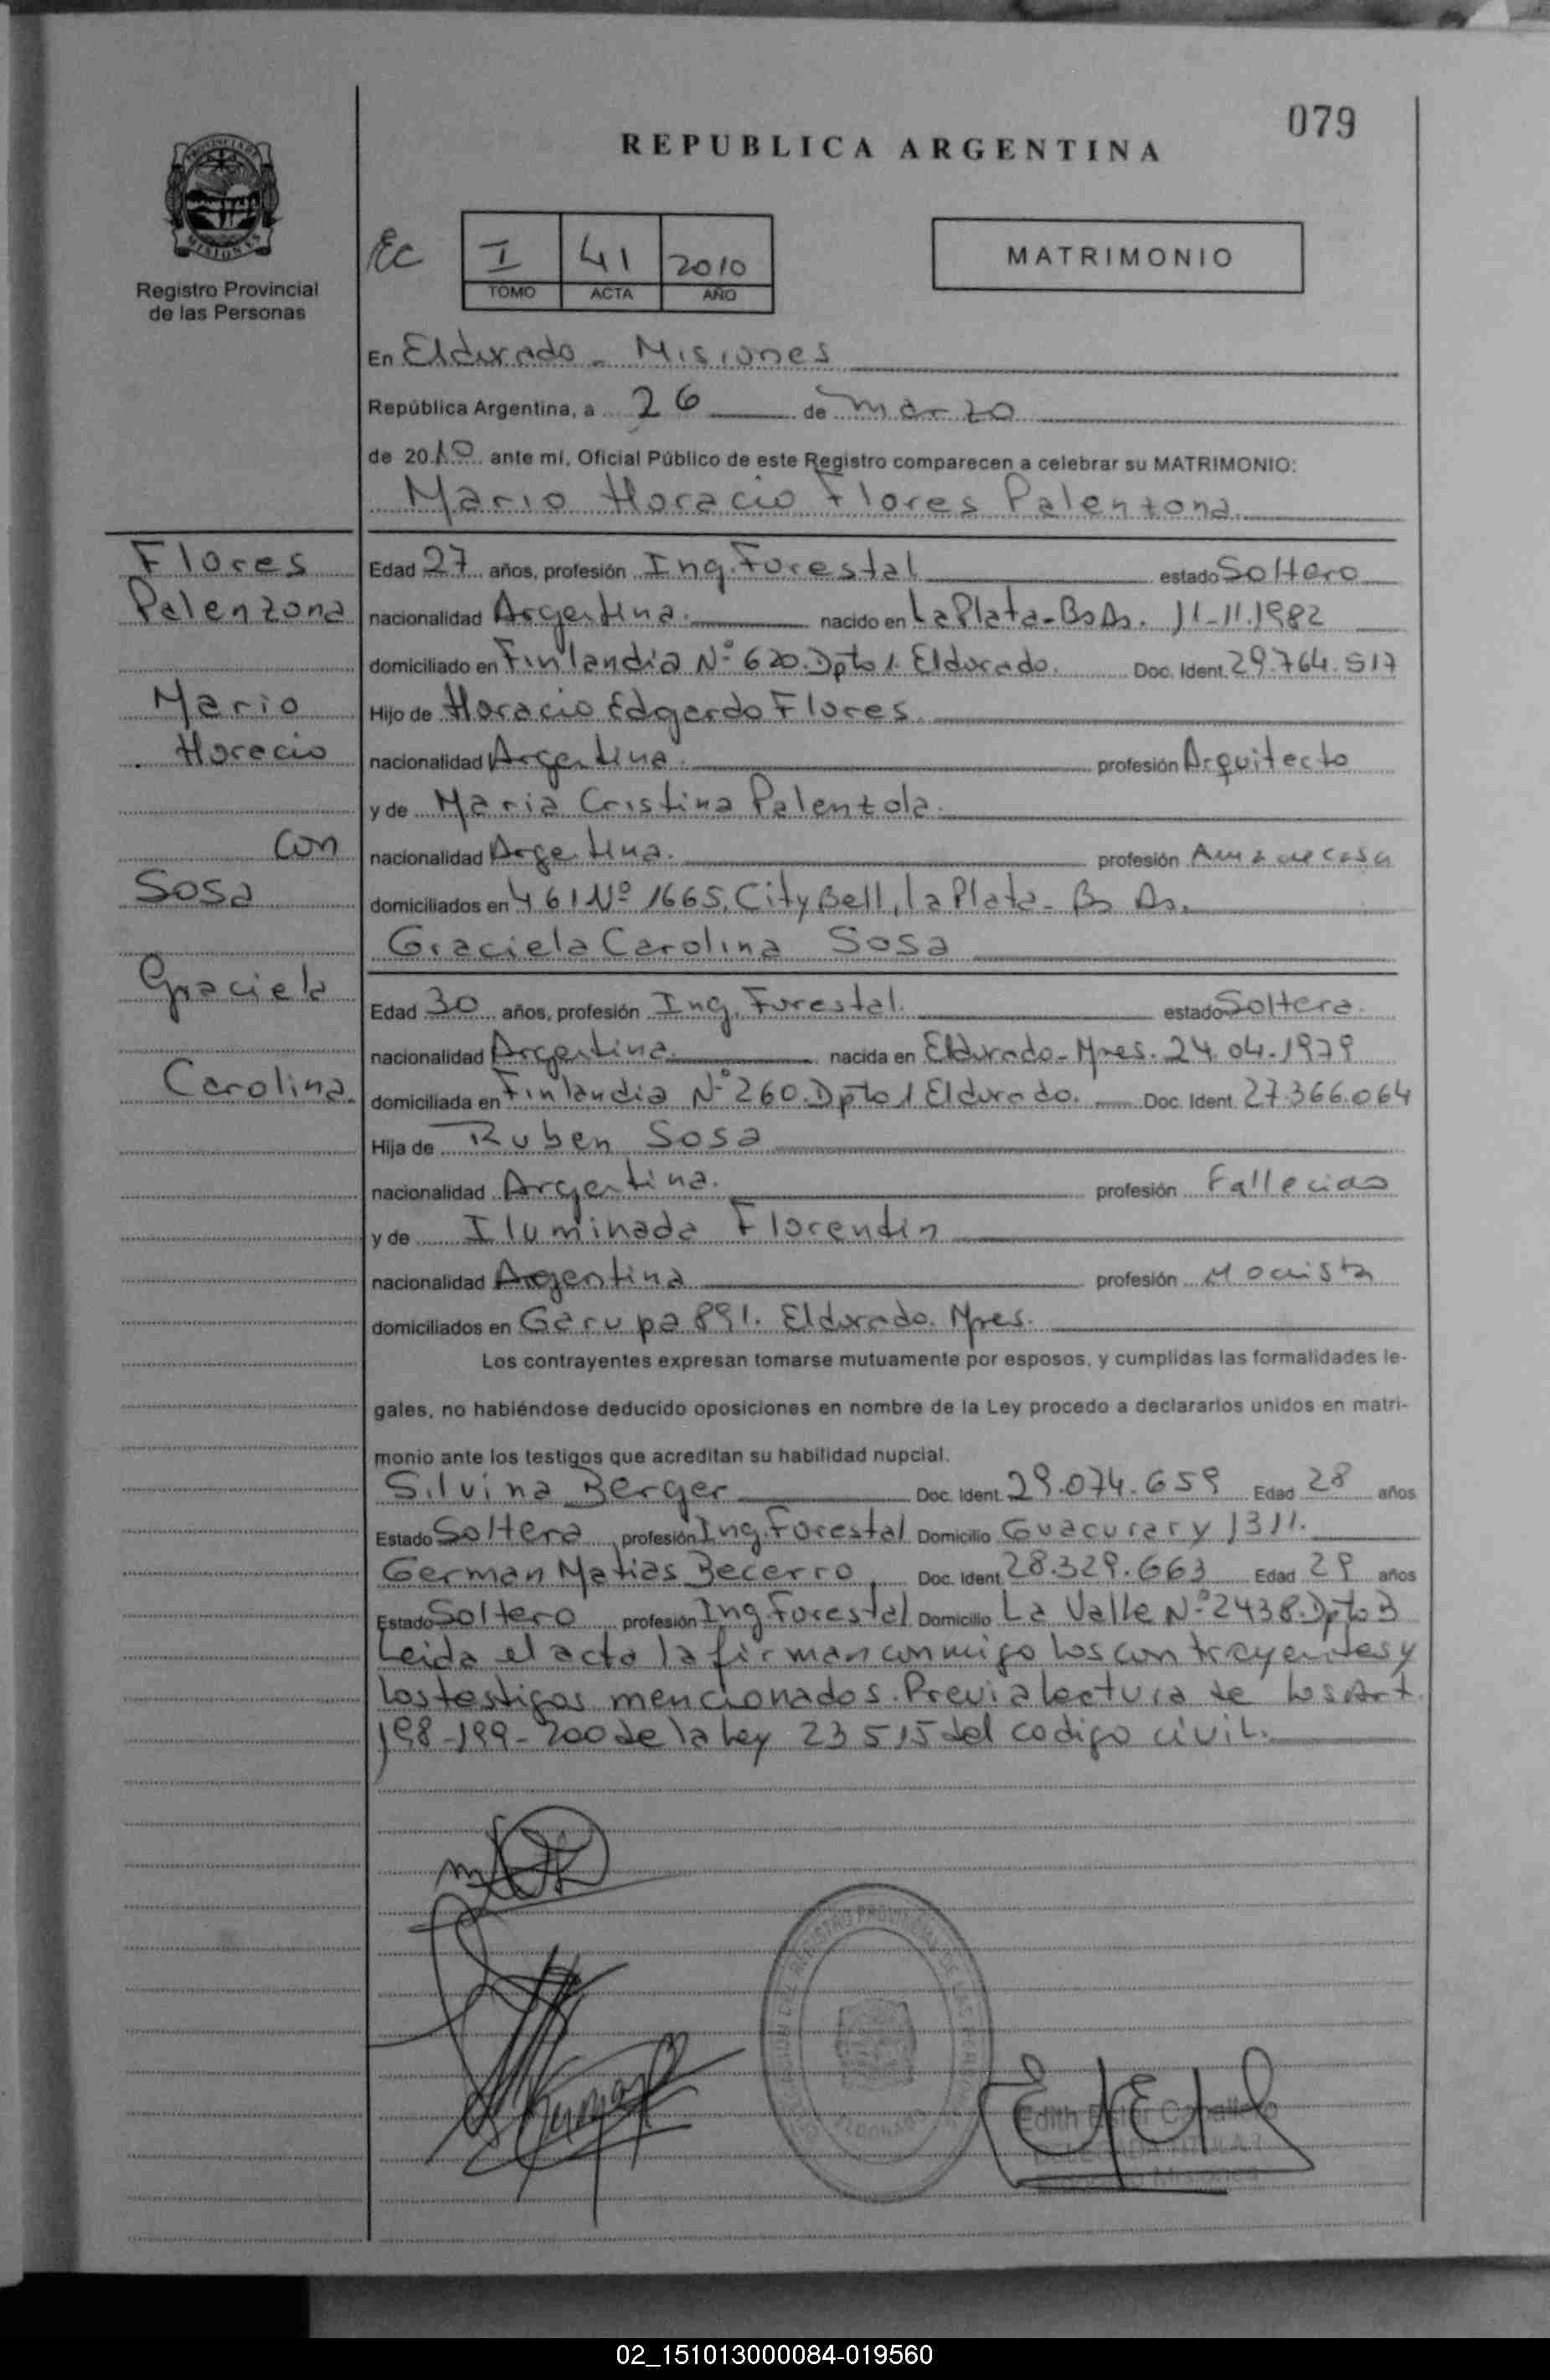 079
REPUBLICA ARGENTINA
Registro Provincial
de las Personas
Ec
I 41 2010
TOMO ACTA AÑO
MATRIMONIO
En Eldorado - Misiones
República Argentina, a 26 de marzo
de 2010 ante mí, Oficial Público de este Registro comparecen a celebrar su MATRIMONIO:
Mario Horacio Flores Palenzona
Flores
Palenzona
Mario
Horacio
con
Sosa
Graciela
Carolina
Edad 27 años, profesión Ing. Forestal estado Soltero
nacionalidad Argentina. nacido en La Plata - Bs As. 11-11.1982
domiciliado en Finlandia Nº 620. Dpto 1. Eldorado. Doc. Ident. 29.764.517
Hijo de Horacio Edgardo Flores
nacionalidad Argentina. profesión Arquitecto
y de Maria Cristina Palenzola.
nacionalidad Argentina. profesión Ama de casa
domiciliados en 461 Nº 1665. City Bell, la Plata - Bs As.
Graciela Carolina Sosa
Edad 30 años, profesión Ing. Forestal. estado Soltera.
nacionalidad Argentina. nacida en Eldorado - Mnes. 24.04.1979
domiciliada en Finlandia Nº 260. Dpto 1 Eldorado. Doc. Ident. 27.366.064
Hija de Ruben Sosa
nacionalidad Argentina. profesión Fallecido
y de Iluminada Florendin
nacionalidad Argentina profesión Modista
domiciliados en Garupa 891. Eldorado. Mnes.
Los contrayentes expresan tomarse mutuamente por esposos, y cumplidas las formalidades le-
gales, no habiéndose deducido oposiciones en nombre de la Ley procedo a declararlos unidos en matri-
monio ante los testigos que acreditan su habilidad nupcial.
Silvina Berger Doc. Ident. 29.074.659 Edad 28 años
Estado Soltera profesión Ing. Forestal Domicilio Guacurary 1311.
German Matias Becerro, Doc. Ident. 28.329.663 Edad 29 años
Estado Soltero profesión Ing Forestal Domicilio La Valle Nº 2438. Dpto 3
Leida el acta la firman conmigo los contrayentes y
los testigos mencionados. Previa lectura de los Art.
198-199-200 de la Ley 23515 del codigo civil.
Edith Ester Caballero
02_151013000084-019560